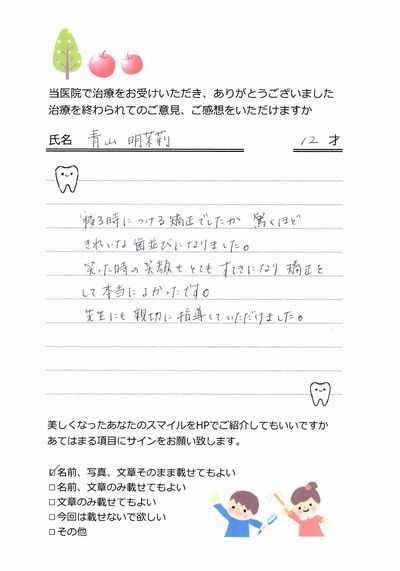 当医院で治療をお受けいただき、ありがとうございました
治療を終わられてのご意見、ご感想をいただけますか
氏名 青山 明茉莉 12 才
寝る時につける矯正でしたが 驚くほど
きれいな歯並びになりました。
笑った時の笑顔もとても すてきになり 矯正を
して本当によかったです。
先生にも親切に指導していただけました。
美しくなったあなたのスマイルをHPでご紹介してもいいですか
あてはまる項目にサインをお願い致します。
☑名前、写真、文章そのまま載せてもよい
□名前、文章のみ載せてもよい
□文章のみ載せてもよい
□今回は載せないで欲しい
□その他